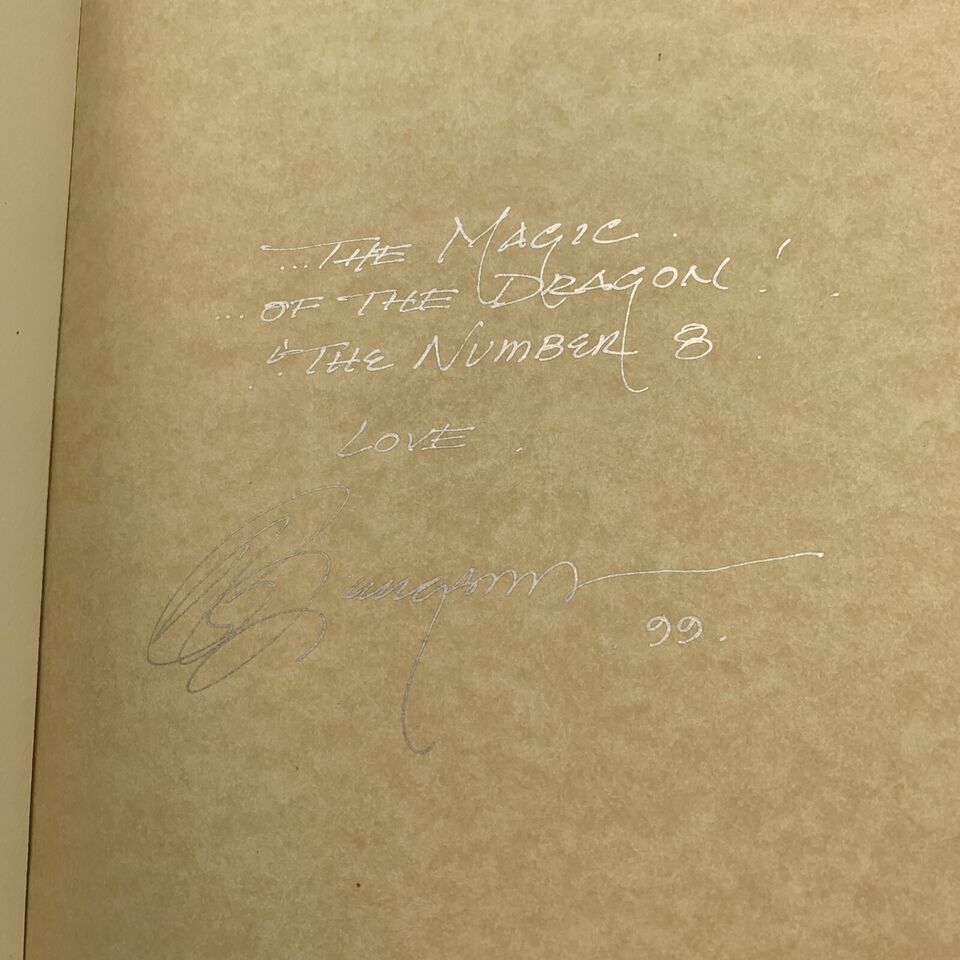 ...THE MAGIC.
...OF THE DRAGON!
& THE NUMBER 8
LOVE.
99.